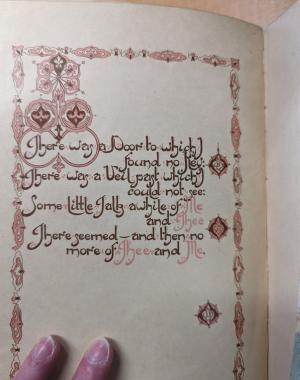 There was a Door to which I
found no Key:
There was a Veil past which I
could not see:
Some little Talk awhile of Me
and Thee
There seemed — and then no
more of Thee and Me.